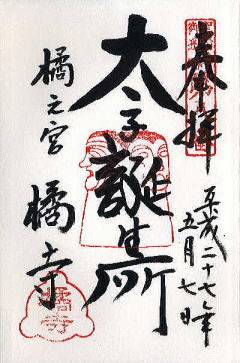 奉拝
平成二十七年
五月七日
太子誕生所
橘之宮
橘寺
橘寺